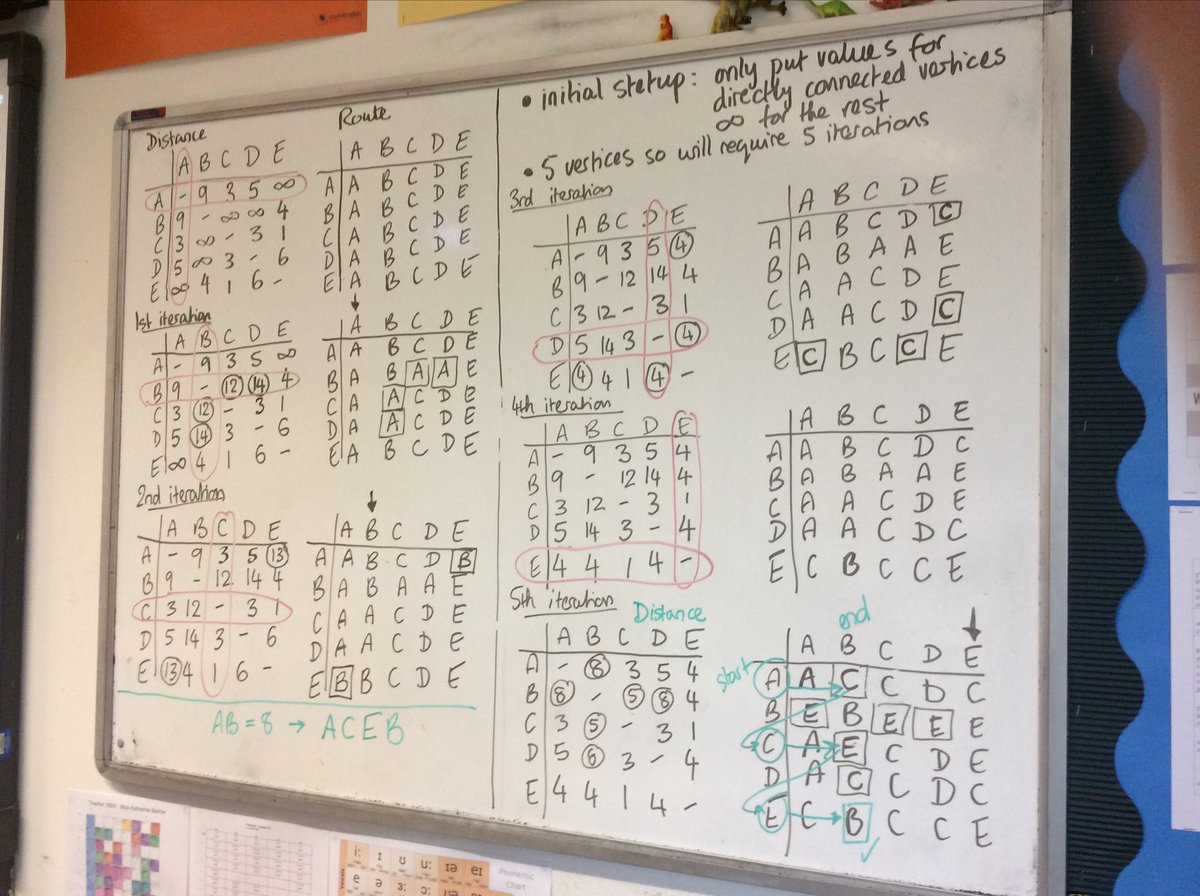 Distance
A B C D E
A - 9 3 5 ∞
B 9 - ∞ ∞ 4
C 3 ∞ - 3 1
D 5 ∞ 3 - 6
E ∞ 4 1 6 -
Route
A B C D E
A A B C D E
B A B C D E
C A B C D E
D A B C D E
E A B C D E
1st iteration
A B C D E
A - 9 3 5 ∞
B 9 - 12 14 4
C 3 12 - 3 1
D 5 14 3 - 6
E ∞ 4 1 6 -
A B C D E
A A B C D E
B A B A A E
C A A C D E
D A A C D E
E A B C D E
2nd iteration
A B C D E
A - 9 3 5 13
B 9 - 12 14 4
C 3 12 - 3 1
D 5 14 3 - 6
E 13 4 1 6 -
A B C D E
A A B C D B
B A B A A E
C A A C D E
D A A C D E
E B B C D E
AB = 8 → ACEB
• initial stetup: only put values for
directly connected vertices
∞ for the rest
• 5 vertices so will require 5 iterations
3rd iteration
A B C D E
A - 9 3 5 4
B 9 - 12 14 4
C 3 12 - 3 1
D 5 14 3 - 4
E 4 4 1 4 -
A B C D E
A A B C D C
B A B A A E
C A A C D E
D A A C D C
E C B C C E
4th iteration
A B C D E
A - 9 3 5 4
B 9 - 12 14 4
C 3 12 - 3 1
D 5 14 3 - 4
E 4 4 1 4 -
A B C D E
A A B C D C
B A B A A E
C A A C D E
D A A C D C
E C B C C E
5th iteration
Distance
A B C D E
A - 8 3 5 4
B 8 - 5 8 4
C 3 5 - 3 1
D 5 8 3 - 4
E 4 4 1 4 -
end
start
A B C D E
A A C C D C
B E B E E E
C A E C D E
D A C C D C
E C B C C E
i: ɪ ʊ u: ɪə eɪ
Phonemic
Chart